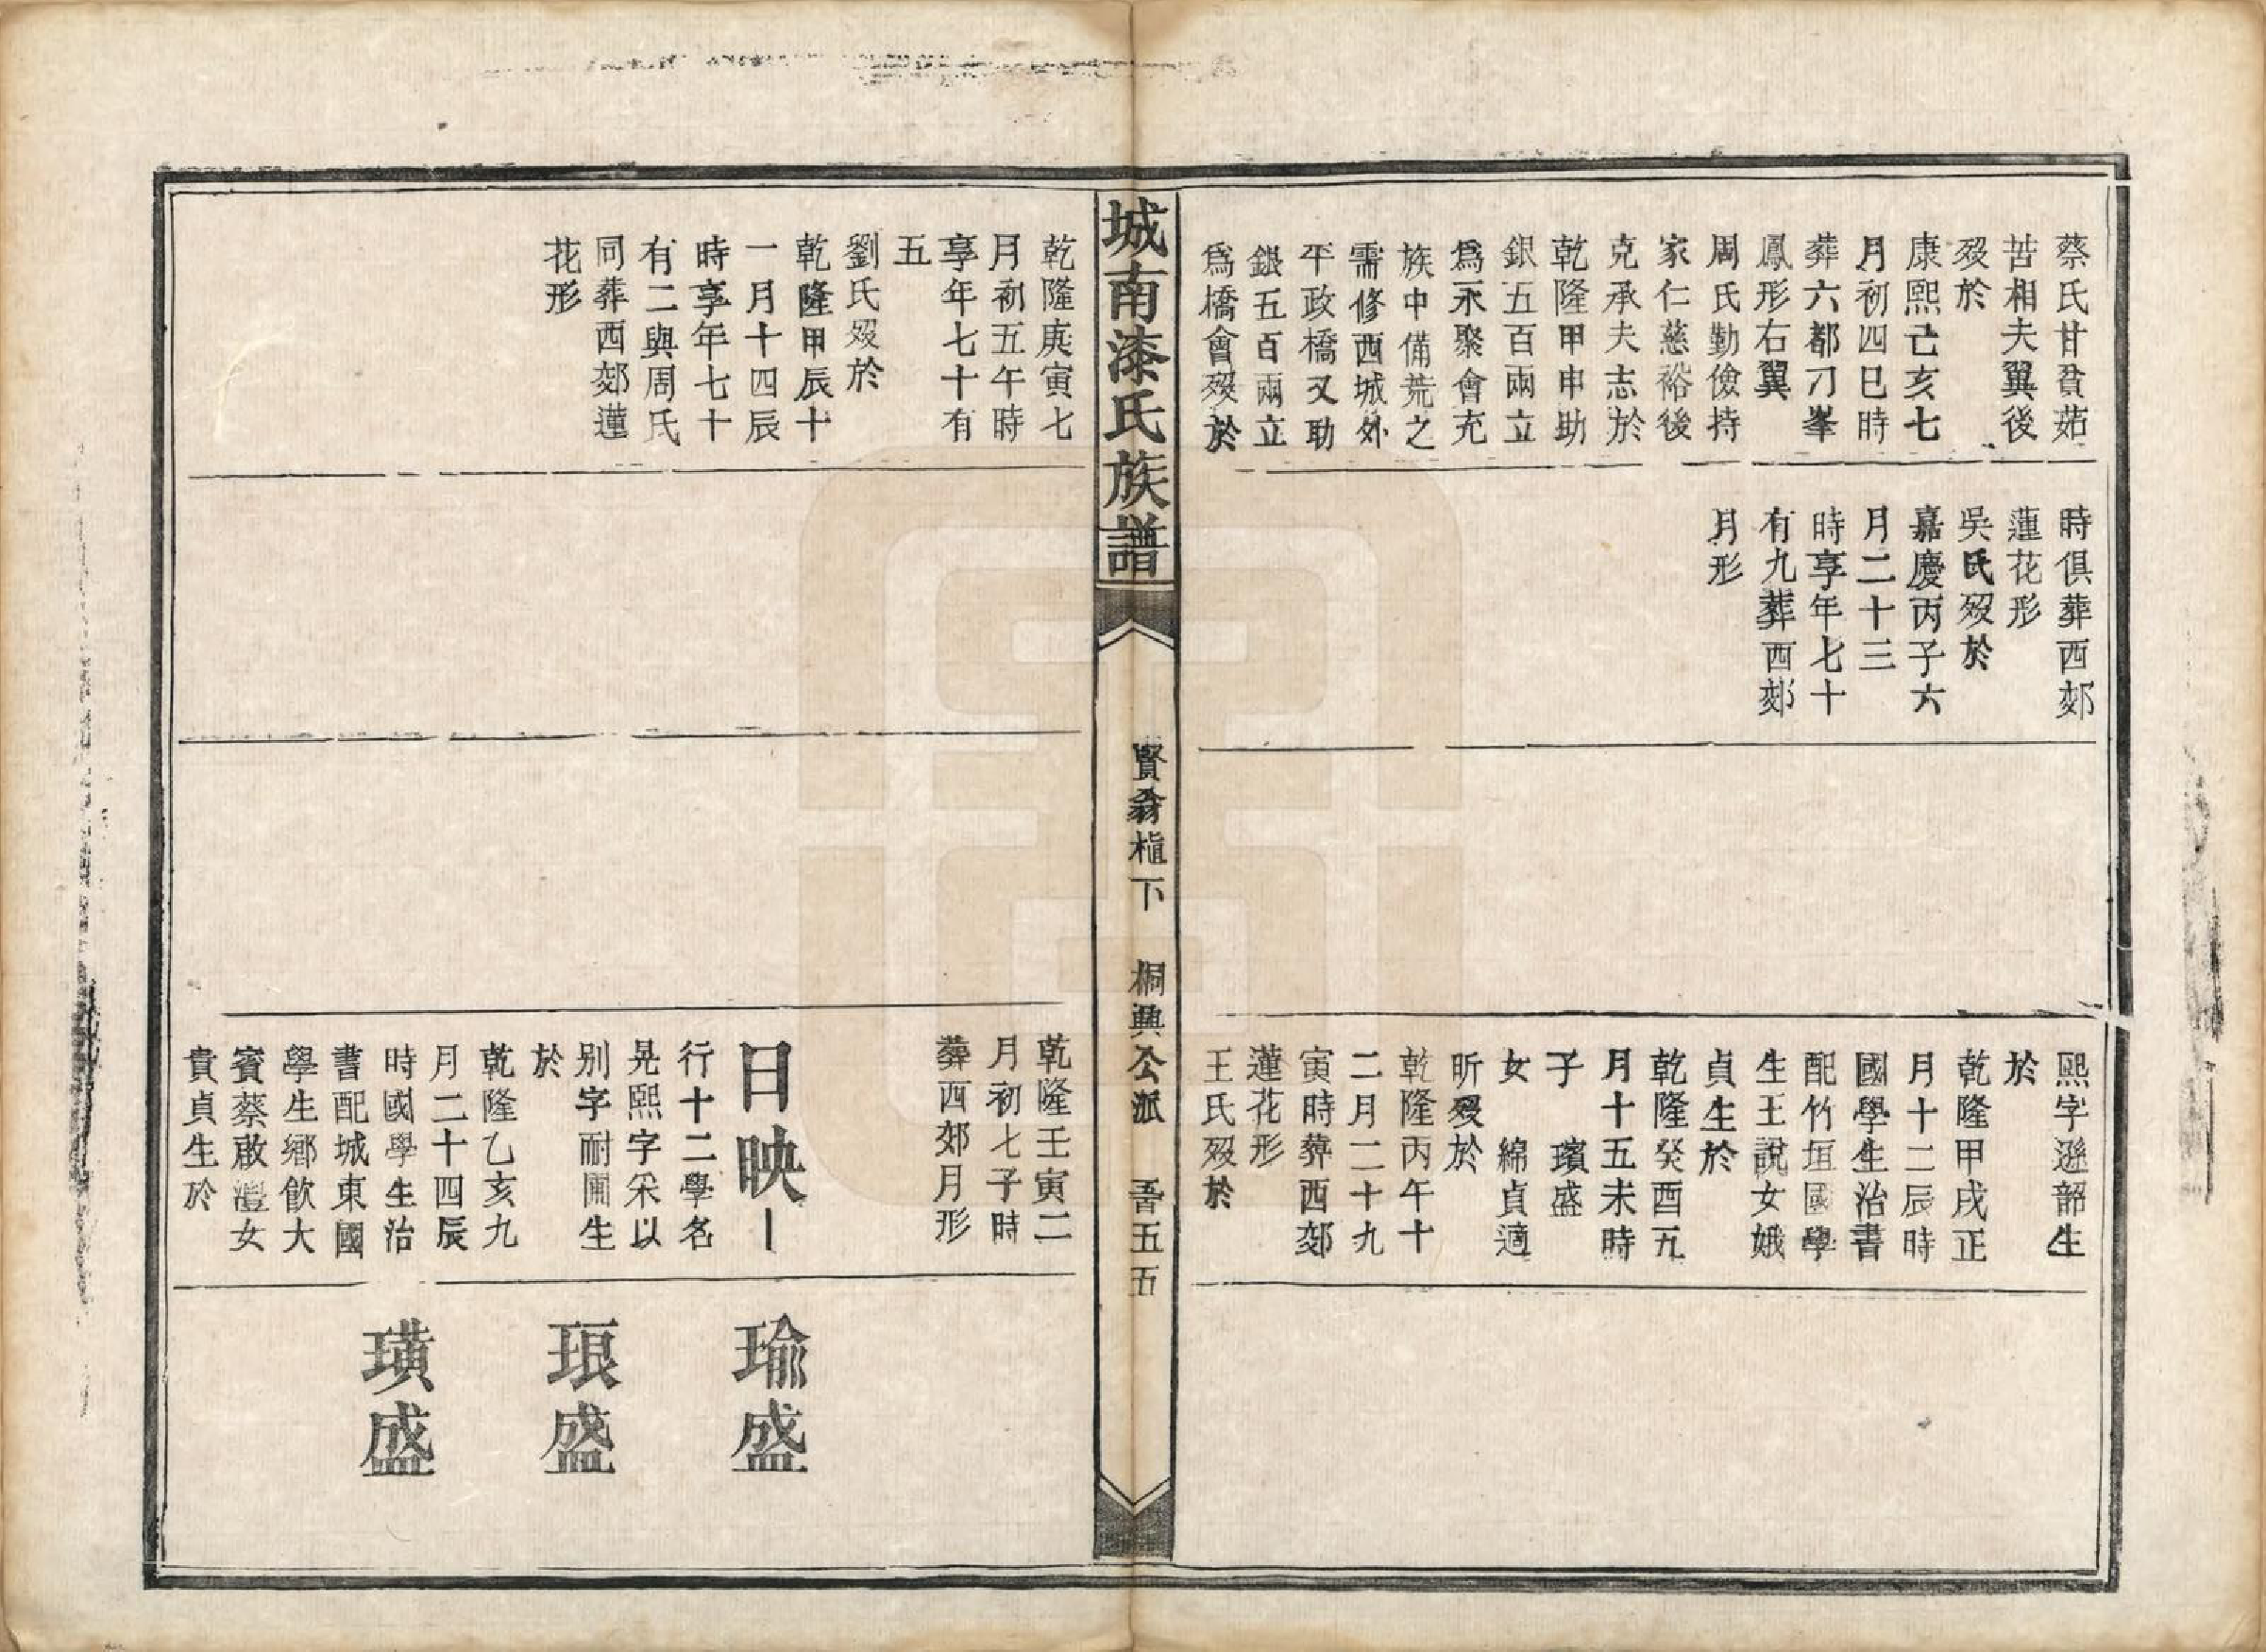 蔡氏甘貧茹
苦相夫翼後
歿於
康熙己亥七
月初四巳時
葬六都刀峯
鳳形右翼
周氏勤儉持
家仁慈裕後
克承夫志於
乾隆甲申助
銀五百兩立
爲永聚會充
族中備荒之
需修西城外
平政橋又助
銀五百兩立
爲橋會歿於
時俱葬西郊
蓮花形
吳氏歿於
嘉慶丙子六
月二十三
時享年七十
有九葬西郊
月形
熙字遜韶生
於
乾隆甲戌正
月十二辰時
國學生治書
配竹垣國學
生王說女娥
貞生於
乾隆癸酉五
月十五未時
子 璸盛
女 綿貞適
昕歿於
乾隆丙午十
二月二十九
寅時葬西郊
蓮花形
王氏歿於
城南漆氏族譜
賢㑹楦下 桐興公派 五五
乾隆庚寅七
月初五午時
享年七十有
五
劉氏歿於
乾隆甲辰十
一月十四辰
時享年七十
有二與周氏
同葬西郊蓮
花形
乾隆壬寅二
月初七子時
葬西郊月形
日映
行十二學名
晃熙字采以
別字耐圃生
於
乾隆乙亥九
月二十四辰
時國學生治
書配城東國
學生鄉飲大
賓蔡敢灃女
貴貞生於
瑜盛
琅盛
璜盛